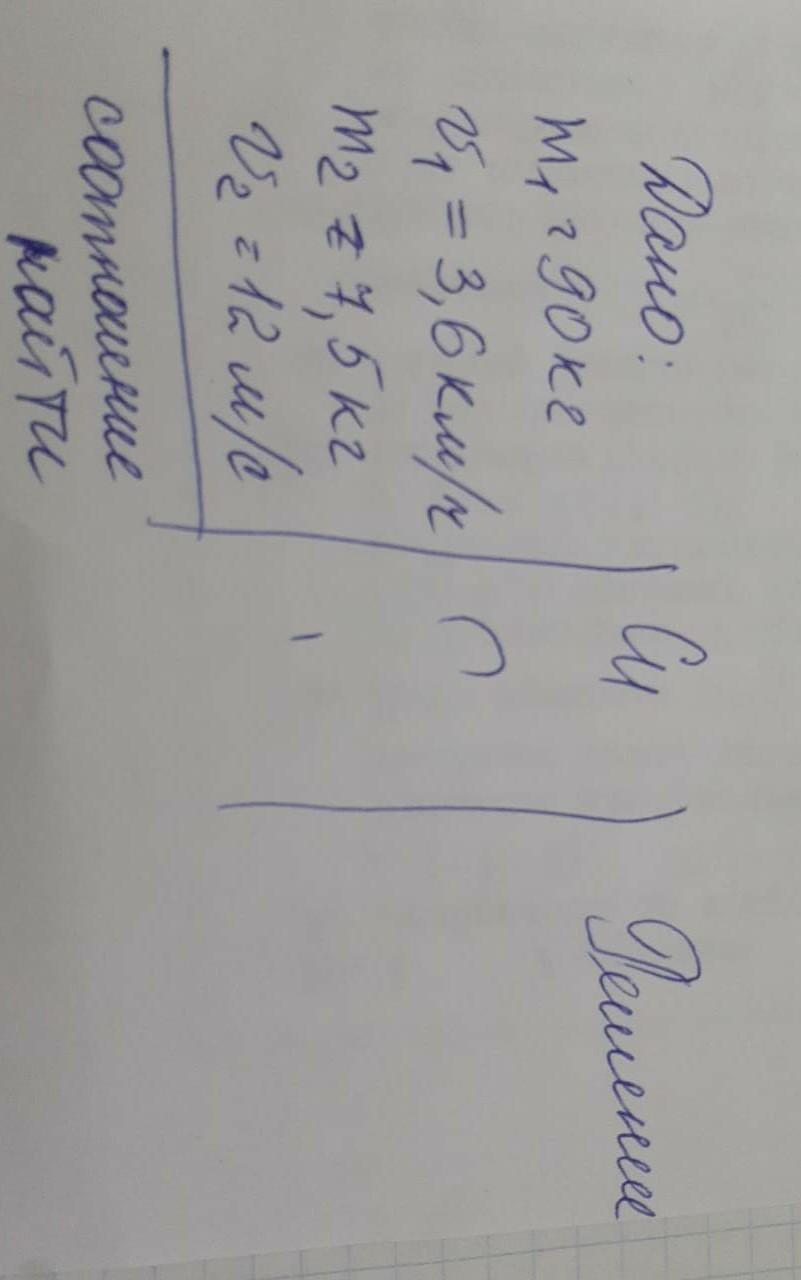 Дано:
m₁ = 90 кг
v₁ = 3,6 км/ч
m₂ = 7,5 кг
v₂ = 12 м/с
соотношение
найти
СИ
Решение